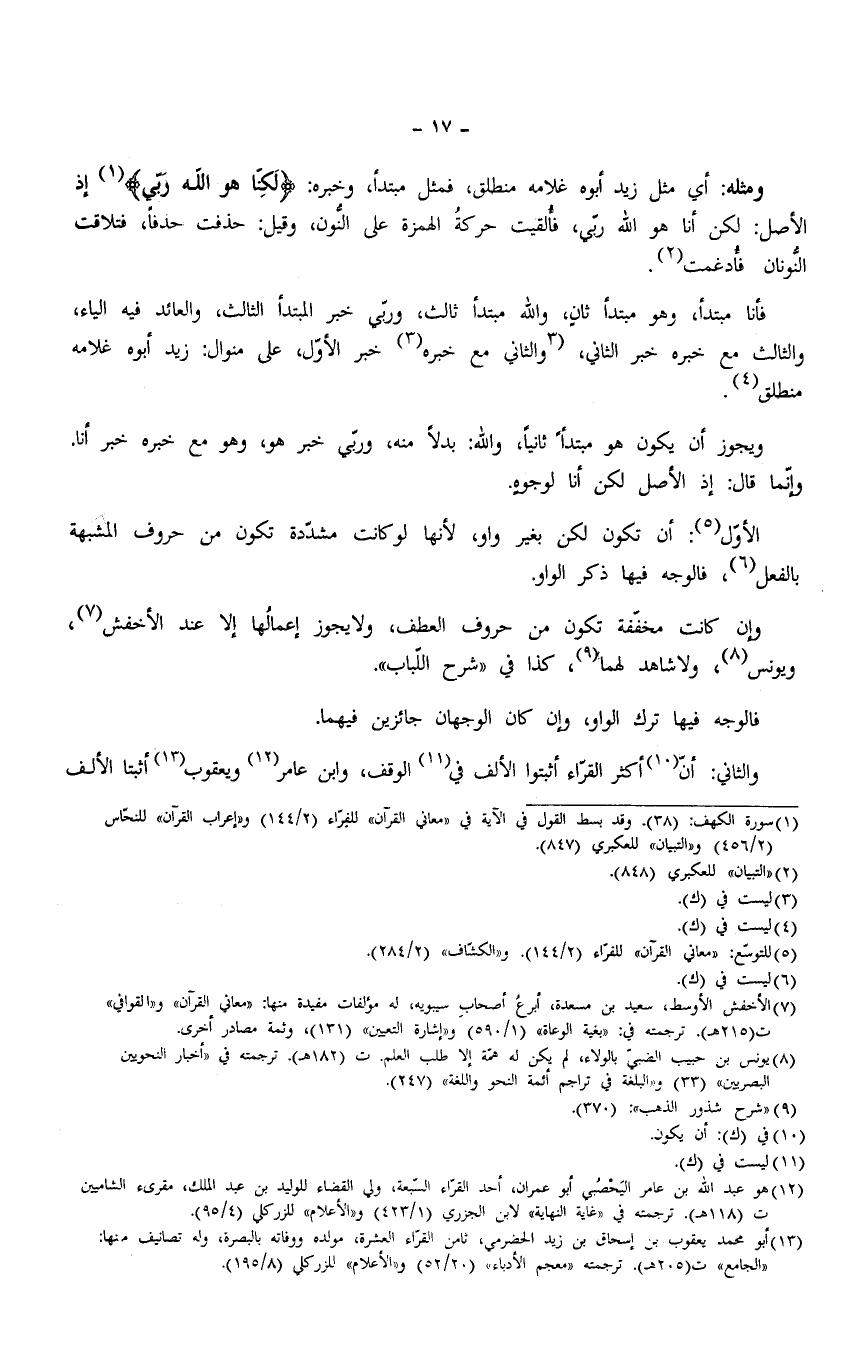 ـ ١٧ ـ
ومثله: أي مثل زيد أبوه غلامه منطلق، فمثل مبتدأ، وخبره: ﴿لَكِنّا هو اللّه رَبّي﴾(١) إذ
الأصل: لكن أنا هو الله ربّي، فأُلقيت حركةُ الهمزة على النُّون، وقيل: حذفت حذفاً، فتلاقت
النُّونان فأُدغمت(٢).
فأنا مبتدأ، وهو مبتدأ ثانٍ، والله مبتدأ ثالث، وربّي خبر المبتدأ الثالث، والعائد فيه الياء،
والثالث مع خبره خبر الثاني، (٣والثاني مع خبره(٣) خبر الأوّل، على منوال: زيد أبوه غلامه
منطلق(٤).
ويجوز أن يكون هو مبتدأً ثانياً، والله: بدلاً منه، وربّي خبر هو، وهو مع خبره خبر أنا.
وإنّما قال: إذ الأصل لكن أنا لوجوهٍ.
الأوّل(٥): أن تكون لكن بغير واو، لأنها لوكانت مشدّدة تكون من حروف المشبهة
بالفعل(٦)، فالوجه فيها ذكر الواو.
وإن كانت مخفّفة تكون من حروف العطف، ولايجوز إعمالُها إلا عند الأخفش(٧)،
ويونس(٨)، ولاشاهد لهما(٩)، كذا في «شرح اللّباب».
فالوجه فيها ترك الواو، وإن كان الوجهان جائزين فيهما.
والثاني: أنّ(١٠) أكثر القرّاء أثبتوا الألف في(١١) الوقف، وابن عامر(١٢) ويعقوب(١٣) أثبتا الألف
(١) سورة الكهف: (٣٨). وقد بسط القول في الآية في «معاني القرآن» للفرّاء (١٤٤/٢) و«إعراب القرآن» للنحّاس
(٤٥٦/٢) و«التبيان» للعكبري (٨٤٧).
(٢) «التبيان» للعكبري (٨٤٨).
(٣) ليست في (ك).
(٤) ليست في (ك).
(٥) للتوسّع: «معاني القرآن» للفرّاء (١٤٤/٢). و«الكشّاف» (٢٨٤/٢).
(٦) ليست في (ك).
(٧) الأخفش الأوسط، سعيد بن مسعدة، أبرعُ أصحابِ سيبويه، له مؤلفات مفيدة منها: «معاني القرآن» و«القوافي»
ت(٢١٥هـ). ترجمته في: «بغية الوعاة» (٥٩٠/١) و«إشارة التعيين» (١٣١)، وثمة مصادر أخرى.
(٨) يونس بن حبيب الضبيّ بالولاء، لم يكن له همّة إلا طلب العلم. ت (١٨٢هـ). ترجمته في «أخبار النحويين
البصريين» (٣٣) و«البلغة في تراجم أئمة النحو واللغة» (٢٤٧).
(٩) «شرح شذور الذهب»: (٣٧٠).
(١٠) في (ك): أن يكون.
(١١) ليست في (ك).
(١٢) هو عبد الله بن عامر اليَحْصُبي أبو عمران، أحد القرّاء السّبعة، ولي القضاء للوليد بن عبد الملك، مقرىء الشاميين
ت (١١٨هـ). ترجمته في «غاية النهاية» لابن الجزري (٤٢٣/١) و«الأعلام» للزركلي (٩٥/٤).
(١٣) أبو محمد يعقوب بن إسحاق بن زيد الحضرمي، ثامن القرّاء العشرة، مولده ووفاته بالبصرة، وله تصانيف منها:
«الجامع» ت(٢٠٥هـ). ترجمته «معجم الأدباء» (٥٢/٢٠) و«الأعلام» للزركلي (١٩٥/٨).